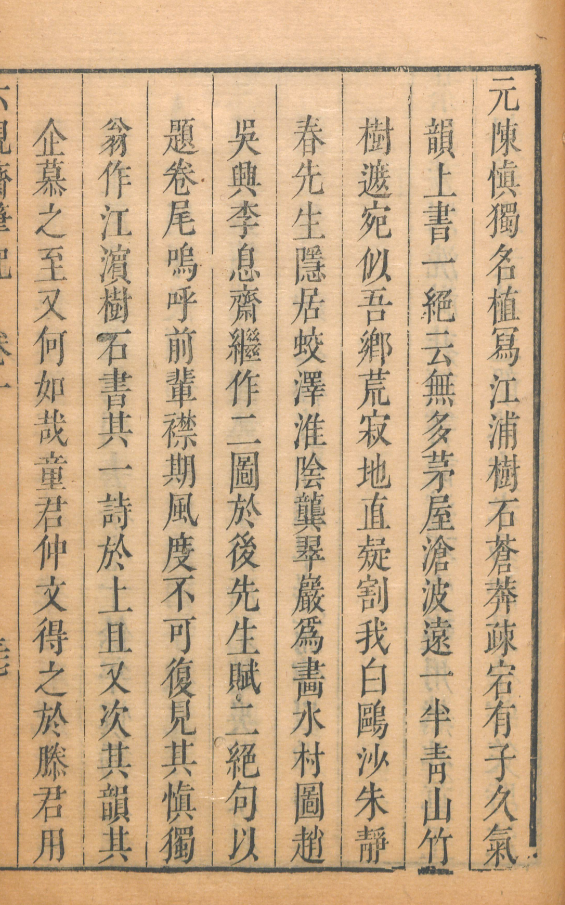 元陳慎獨名植冩江浦樹石蒼莽疎宕有子久氣
韻上書一絕云無多茅屋滄波遠一半青山竹
樹遮宛似吾鄉荒寂地直疑割我白鷗沙朱靜
春先生隱居蛟澤淮陰龔翠巖爲畵水村圖趙
吳興李息齋繼作二圖於後先生賦二絕句以
題卷尾嗚呼前輩襟期風度不可復見其慎獨
翁作江濵樹石書其一詩於上且又次其韻其
企慕之至又何如哉童君仲文得之於滕君用
六硯齋筆記 卷一